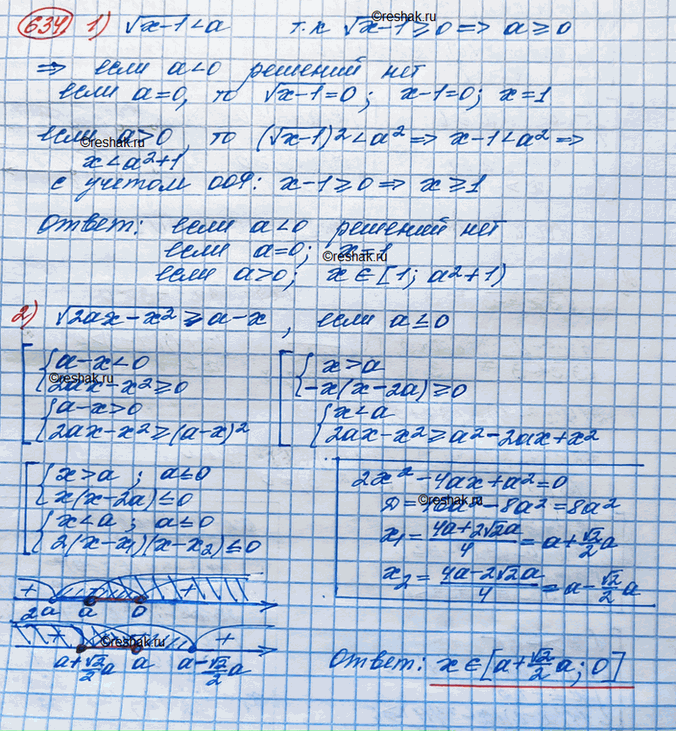 634 1) √x-1 < a т.к √x-1 ≥ 0 => a ≥ 0
©reshak.ru
=> если a<0 решений нет
если a=0, то √x-1=0; x-1=0; x=1
если a>0, то (√x-1)²<a² => x-1<a² =>
©reshak.ru
x<a²+1
с учетом ОДЗ: x-1≥0 => x≥1
Ответ: если a<0 решений нет
если a=0; x=1
©reshak.ru
если a>0; x∈[1; a²+1)
2) √2ax-x² ≥ a-x, если a≤0
a-x<0
2ax-x²≥0
©reshak.ru
a-x>0
2ax-x²≥(a-x)²
x>a
-x(x-2a)≥0
x<a
2ax-x²≥a²-2ax+x²
x>a; a≤0
x(x-2a)≤0
x<a; a≤0
2(x-x₁)(x-x₂)≤0
2x²-4ax+a²=0
D=16a²-8a²=8a²
©reshak.ru
x₁=(4a+2√2a)/4=a+√2/2a
x₂=(4a-2√2a)/4=a-√2/2a
+ - +
2a a 0
+ - +
©reshak.ru
a+√2/2a a a-√2/2a
Ответ: x∈[a+√2/2a; 0]